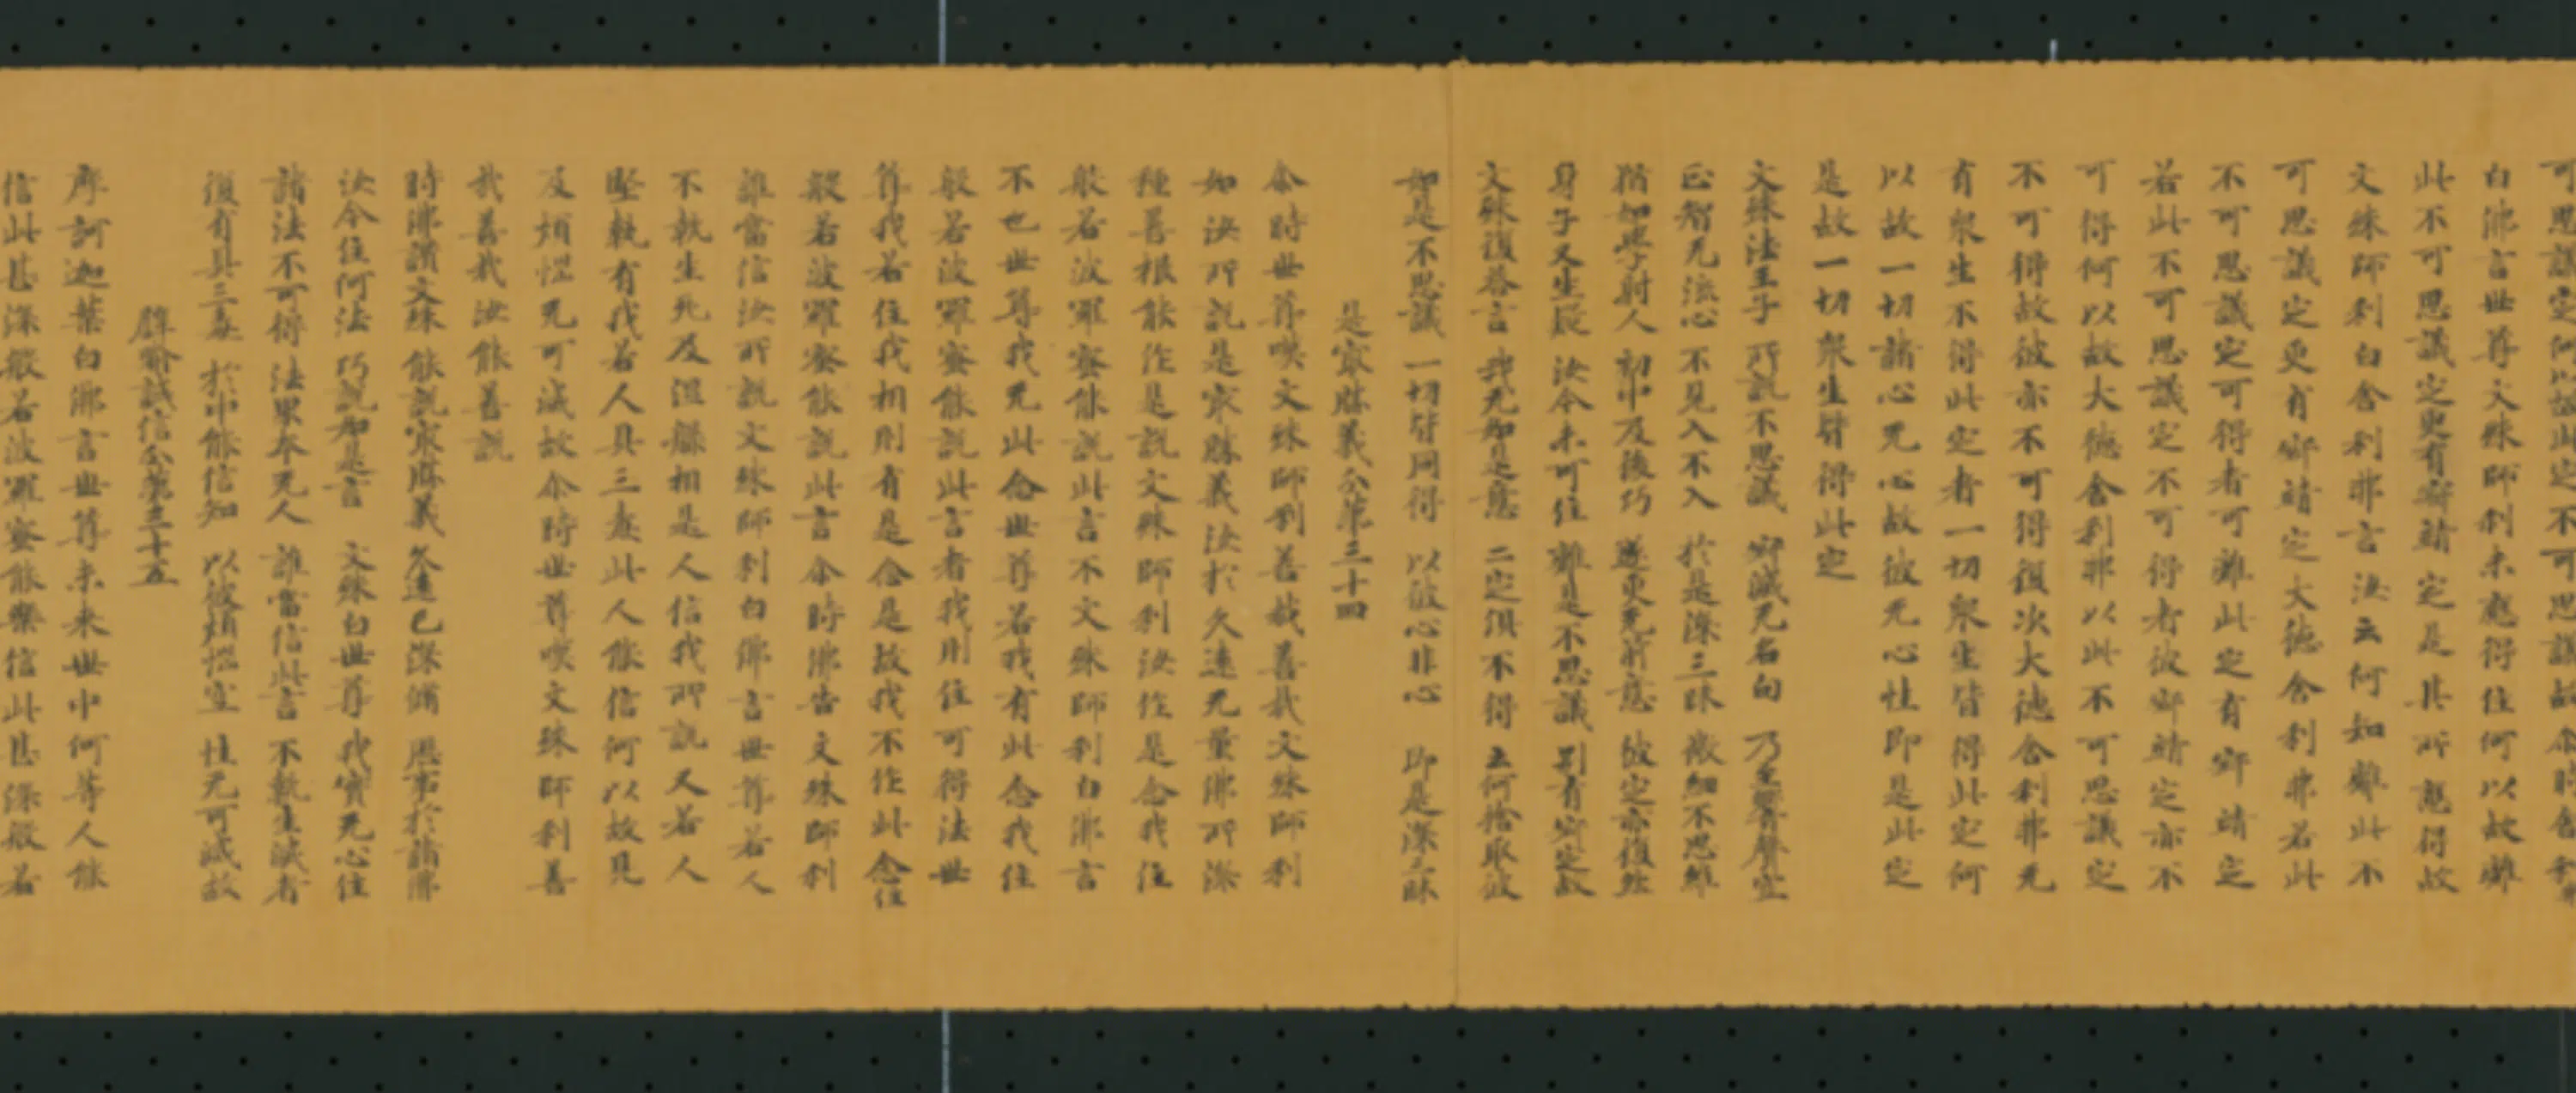 可思議定何以故此定不可思議故尒時舍利弗
白佛言世尊文殊師利未應得住何以故離
此不可思議定更有寂靜定是其所應得故
文殊師利白舍利弗言汝云何知離此不
可思議定更有寂靜定大德舍利弗若此
不可思議定可得者可離此定有寂靜定
若此不可思議定不可得者彼寂靜定亦不
可得何以故大德舍利弗以此不可思議定
不可得故彼亦不可得復次大德舍利弗无
有衆生不得此定者一切衆生皆得此定何
以故一切諸心无心故彼无心性即是此定
是故一切衆生皆得此定
文殊法王子 所說不思議 寂滅无名句 乃至聲聲空
正智无流心 不見入不入 於是深三昧 微細不思維
猶如學射人 初中及後巧 遂更无前意 彼定亦復然
身子又生疑 汝今未可住 離是不思議 別有寂定故
文殊復荅言 我无如是意 二定俱不得 云何捨取彼
如是不思議 一切皆同得 以彼心非心 即是深三昧
是㝡勝義分第三十四
尒時世尊嘆文殊師利善哉善哉文殊師利
如汝所說是㝡勝義汝於久遠无量佛所深
種善根能作是說文殊師利汝作是念我住
般若波羅蜜能說此言不文殊師利白佛言
不也世尊我无此念世尊若我有此念我住
般若波羅蜜能說此言者我則住可得法世
尊我若住我相則有是念是故我不作此念住
般若波羅蜜能說此言尒時佛告文殊師利
誰當信汝所說文殊師利白佛言世尊若人
不執生死及涅槃相是人信我所說又若人
堅執有我若人具三毒此人能信何以故見
及煩惱无可滅故尒時世尊嘆文殊師利善
哉善哉汝能善說
時佛讚文殊 能說㝡勝義 久遠已深種 歷事於諸佛
汝今住何法 巧說如是言 文殊白世尊 我實无心住
諸法不可得 法界本无人 誰當信此言 不執生滅者
復有具三毒 於中能信知 以彼煩惱空 性无可滅故
譬喻誠信分第三十五
摩訶迦葉白佛言世尊未來世中何等人能
信此甚深般若波羅蜜能樂信此甚深般若